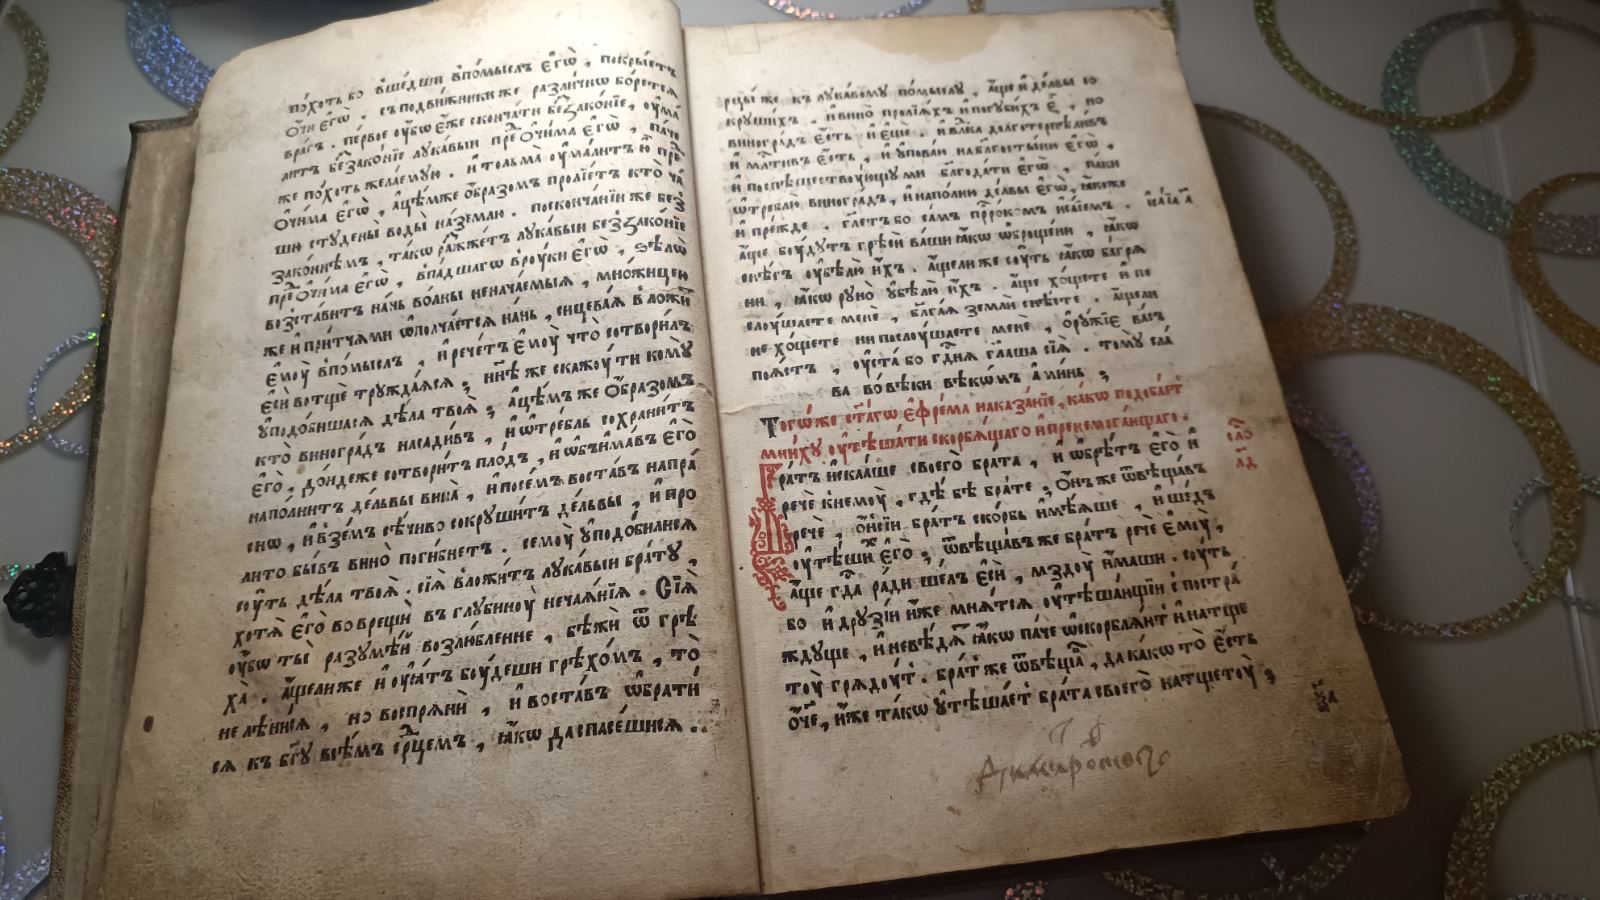 по́хоть бо вше́дши впо́мыслъ є҆гѡ̀, покрые́тъ
ѻ҆́чи є҆гѡ̀. съподви́жники же разли́чнѡ бо́ретсѧ
вра́гъ. пе́рвое ᲂу҆́бѡ є҆́же сконча́ти беззако́нїе, ᲂу҆ма́
лит беззако́нїе лука́выи преⷣ ѻ҆чи́ма є҆гѡ̀, па́че
же по́хоть жела́емую. и҆ то́льма ᲂу҆ма́лит ю҆̀ преⷣ
ѻ҆чи́ма є҆гѡ̀, а҆́цѣмже ѻ҆́бразом пролїе́тъ кто̀ ча́
шю студены̀ воды̀ на́землю. посконча́нїи же без
зако́ннѣм, та́кѡ ра́жжетъ лука́выи беззако́нїе
преⷣ ѻ҆чи́ма є҆гѡ̀, впа́дшагѡ вро́уки є҆гѡ̀, ѕѣлѡ̀
возста́вит на́нь во́лны неначаемыѧ, мно́жицею
же и҆ при́тчями ѡ҆полча́етсѧ на́нь, сицева́ѧ вложи́т
є҆мꙋ̀ впо́мыслъ, и҆ рече́тъ є҆моу̀ что̀ сотвори́лъ
є҆сѝ вотщѐ тружда́ѧсѧ; нн҃ѣ же скажоу́ ти комꙋ̀
ᲂу҆подо́бишасѧ дѣла̀ твоѧ̀; а҆́цѣмъ же ѻ҆́бразомъ
кто̀ виногра́дъ насади́въ, и҆ ѡ҆тре́бль сохрани́тъ
є҆го̀, до́ндеже сотвори́тъ пло́дъ, и҆ ѡ҆бъима́въ є҆го̀
напо́лнитъ де́львы вина̀, и҆ посе́мъ воста́въ напра́
снѡ, и҆ взе́мъ сѣ́чиво сокруши́тъ де́львы, и҆ про
лито бы́въ вино̀ поги́бнетъ. семоу̀ ᲂу҆подо́билисѧ
соу́ть дѣла̀ твоѧ̀. сїѧ̀ вложи́тъ лука́выи бра́ту,
хотѧ̀ є҆го̀ вовре́щи въ глубиноу̀ неча́ѧнїѧ. Сїѧ̀
ᲂу҆́бѡ ты̀ разумѣ́й возлю́бленне, бѣжѝ ѿ грѣ
ха̀. а҆́щели же и҆ ᲂу҆ѧ́тъ бо́удеши грѣхо́мъ, то̀
не лѣни́сѧ, но воспрѧнѝ, и҆ воста́въ ѡ҆брати́
сѧ къ бг҃у всѣ́мъ срⷣцемъ, ꙗ҆́кѡ да спасе́шисѧ..
рцы́ же къ лука́вому по́мыслу, а҆́ще и҆ де́львы со
круши́хъ. и҆ вино̀ пролїѧ́хъ и҆ погуби́хъ є҆̀, но
виногра́дъ є҆́сть и҆ є҆щѐ. и҆ вл҃ка долготерпѣли́въ
и҆ млⷭ҇тив є҆́сть, и҆ ᲂу҆пова́ю наблагосты́ни є҆гѡ̀,
и҆ поспѣшествоу́ющу ми блгⷣа́ти є҆гѡ̀, па́ки
ѡ҆тре́блю виногра́дъ, и҆ напо́лню де́львы є҆гѡ̀, ꙗ҆́коже
и҆ пре́жде. гл҃етъ бо сам прⷪ҇ро́комъ и҆са́їемъ. и҆са́їа а҃
а҆́ще бо́удутъ грѣсѝ ва́ши ꙗ҆́кѡ ѡ҆броще́ни, ꙗ҆́кѡ
снѣ́гъ ᲂу҆бѣлю̀ и҆́хъ. а҆́щели же соу́ть ꙗ҆́кѡ багрѧ́
ни, ꙗ҆́кѡ руно̀ ᲂу҆бѣлю̀ и҆́хъ. а҆́ще хо́щете и҆ по
слоу́шаете менѐ, бл҃га́ѧ землѝ снѣ́сте. а҆́щели
не хо́щете ни послоу́шаете менѐ, ѻ҆ру́жїе ва́съ
поѧ́стъ, ᲂу҆ста́ бо гдⷭ҇нѧ гл҃аша сїѧ̀. тому сла́
ва во вѣ́ки вѣкѡ́мъ а҆ми́нь;
Тогѡ́же ст҃а́гѡ є҆фре́ма наказа́нїе, ка́кѡ подоба́етъ
мни́ху ᲂу҆тѣша́ти скорбѧ́щаго и҆ пренемога́ющаго.
сло́
л҃д
Бра́тъ и҆ска́аше своего̀ бра́та, и҆ ѡ҆брѣ́тъ є҆го̀ и҆
речѐ к немоу̀. гдѣ̀ бѣ̀ бра́те; ѻ҆́нъ же ѿвѣща́въ
речѐ, ѻ҆́нсїи бра́тъ ско́рбь и҆мѣ́ѧше, и҆ ше́дъ
ᲂу҆тѣ́шихъ є҆го̀, ѿвѣща́въ же бра́тъ речѐ є҆моу̀,
а҆́ще гдⷭ҇а ра́ди ше́лъ є҆сѝ, мздоу̀ и҆́маши. соу́ть
бо и҆ друзі́и и҆́же мнѧ́тсѧ ᲂу҆тѣша́ющїи с постра́
ждуще, и҆ невѣ́дѧт ꙗ҆́кѡ па́че ѡ҆скорблѧ́ют и҆ на тще
тоу̀ грѧдоу́т. бра́т же ѿвѣща̀, да ка́кѡ то̀ є҆́сть
ѻ҆́ч҃е, и҆́же та́кѡ ᲂу҆тѣша́ет бра́та своего̀ на тщетоу̀;